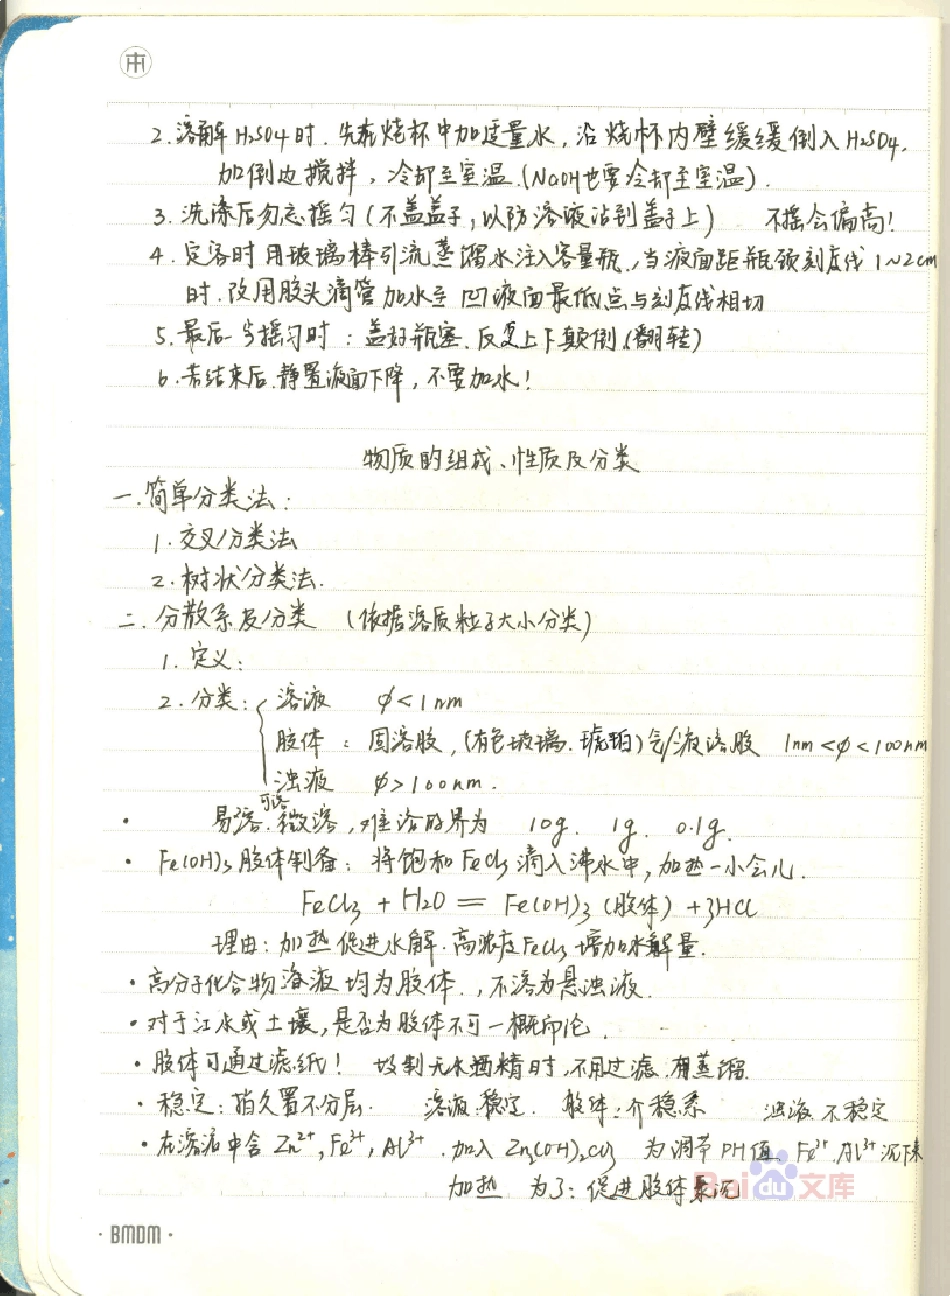 2.溶解H₂SO₄时.先在烧杯中加适量水,沿烧杯内壁缓缓倒入H₂SO₄,
加倒边搅拌,冷却至室温.(NaOH也要冷却至室温).
3.洗涤后勿忘摇匀(不盖盖子,以防溶液沾到盖子上) 不摇会偏高!
4.定容时用玻璃棒引流蒸馏水注入容量瓶.,当液面距瓶颈刻度线1~2cm
时.改用胶头滴管加水至凹液面最低点与刻度线相切
5.最后 摇匀时:盖好瓶塞.反复上下颠倒(翻转)
6.若结束后.静置液面下降,不要加水!
物质的组成、性质及分类
一.简单分类法:
1.交叉分类法
2.树状分类法.
二.分散系及分类 (依据溶质粒子大小分类)
1.定义:
2.分类: 溶液 φ<1nm
胶体:固溶胶,(有色玻璃.琥珀)气/液溶胶 1nm<φ<100nm
浊液 φ>100nm.
可溶
· 易溶.微溶,难溶的界为 10g. 1g. 0.1g.
· Fe(OH)₃胶体制备:将饱和FeCl₃滴入沸水中,加热一小会儿.
FeCl₃+H₂O=Fe(OH)₃(胶体)+3HCl
理由:加热促进水解.高浓度FeCl₃增加水解量.
·高分子化合物溶液均为胶体.,不溶为悬浊液.
·对于江水或土壤,是否为胶体不可一概而论.
·胶体可通过滤纸! 故制无水酒精时,不用过滤.用蒸馏.
·稳定:指久置不分层. 溶液:稳定. 胶体:介稳系 浊液 不稳定
·在溶液中含Zn²⁺,Fe³⁺,Al³⁺.加入Zn₂(OH)₂CO₃ 为调节PH值 Fe³⁺.Al³⁺沉下来
加热 为了:促进胶体聚沉
Baidu文库
·BMDM·